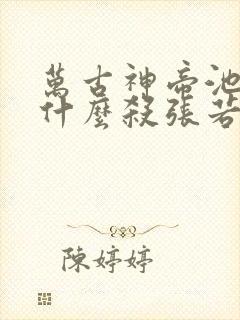 萬古神帝池
什麼殺張若
陳婷婷